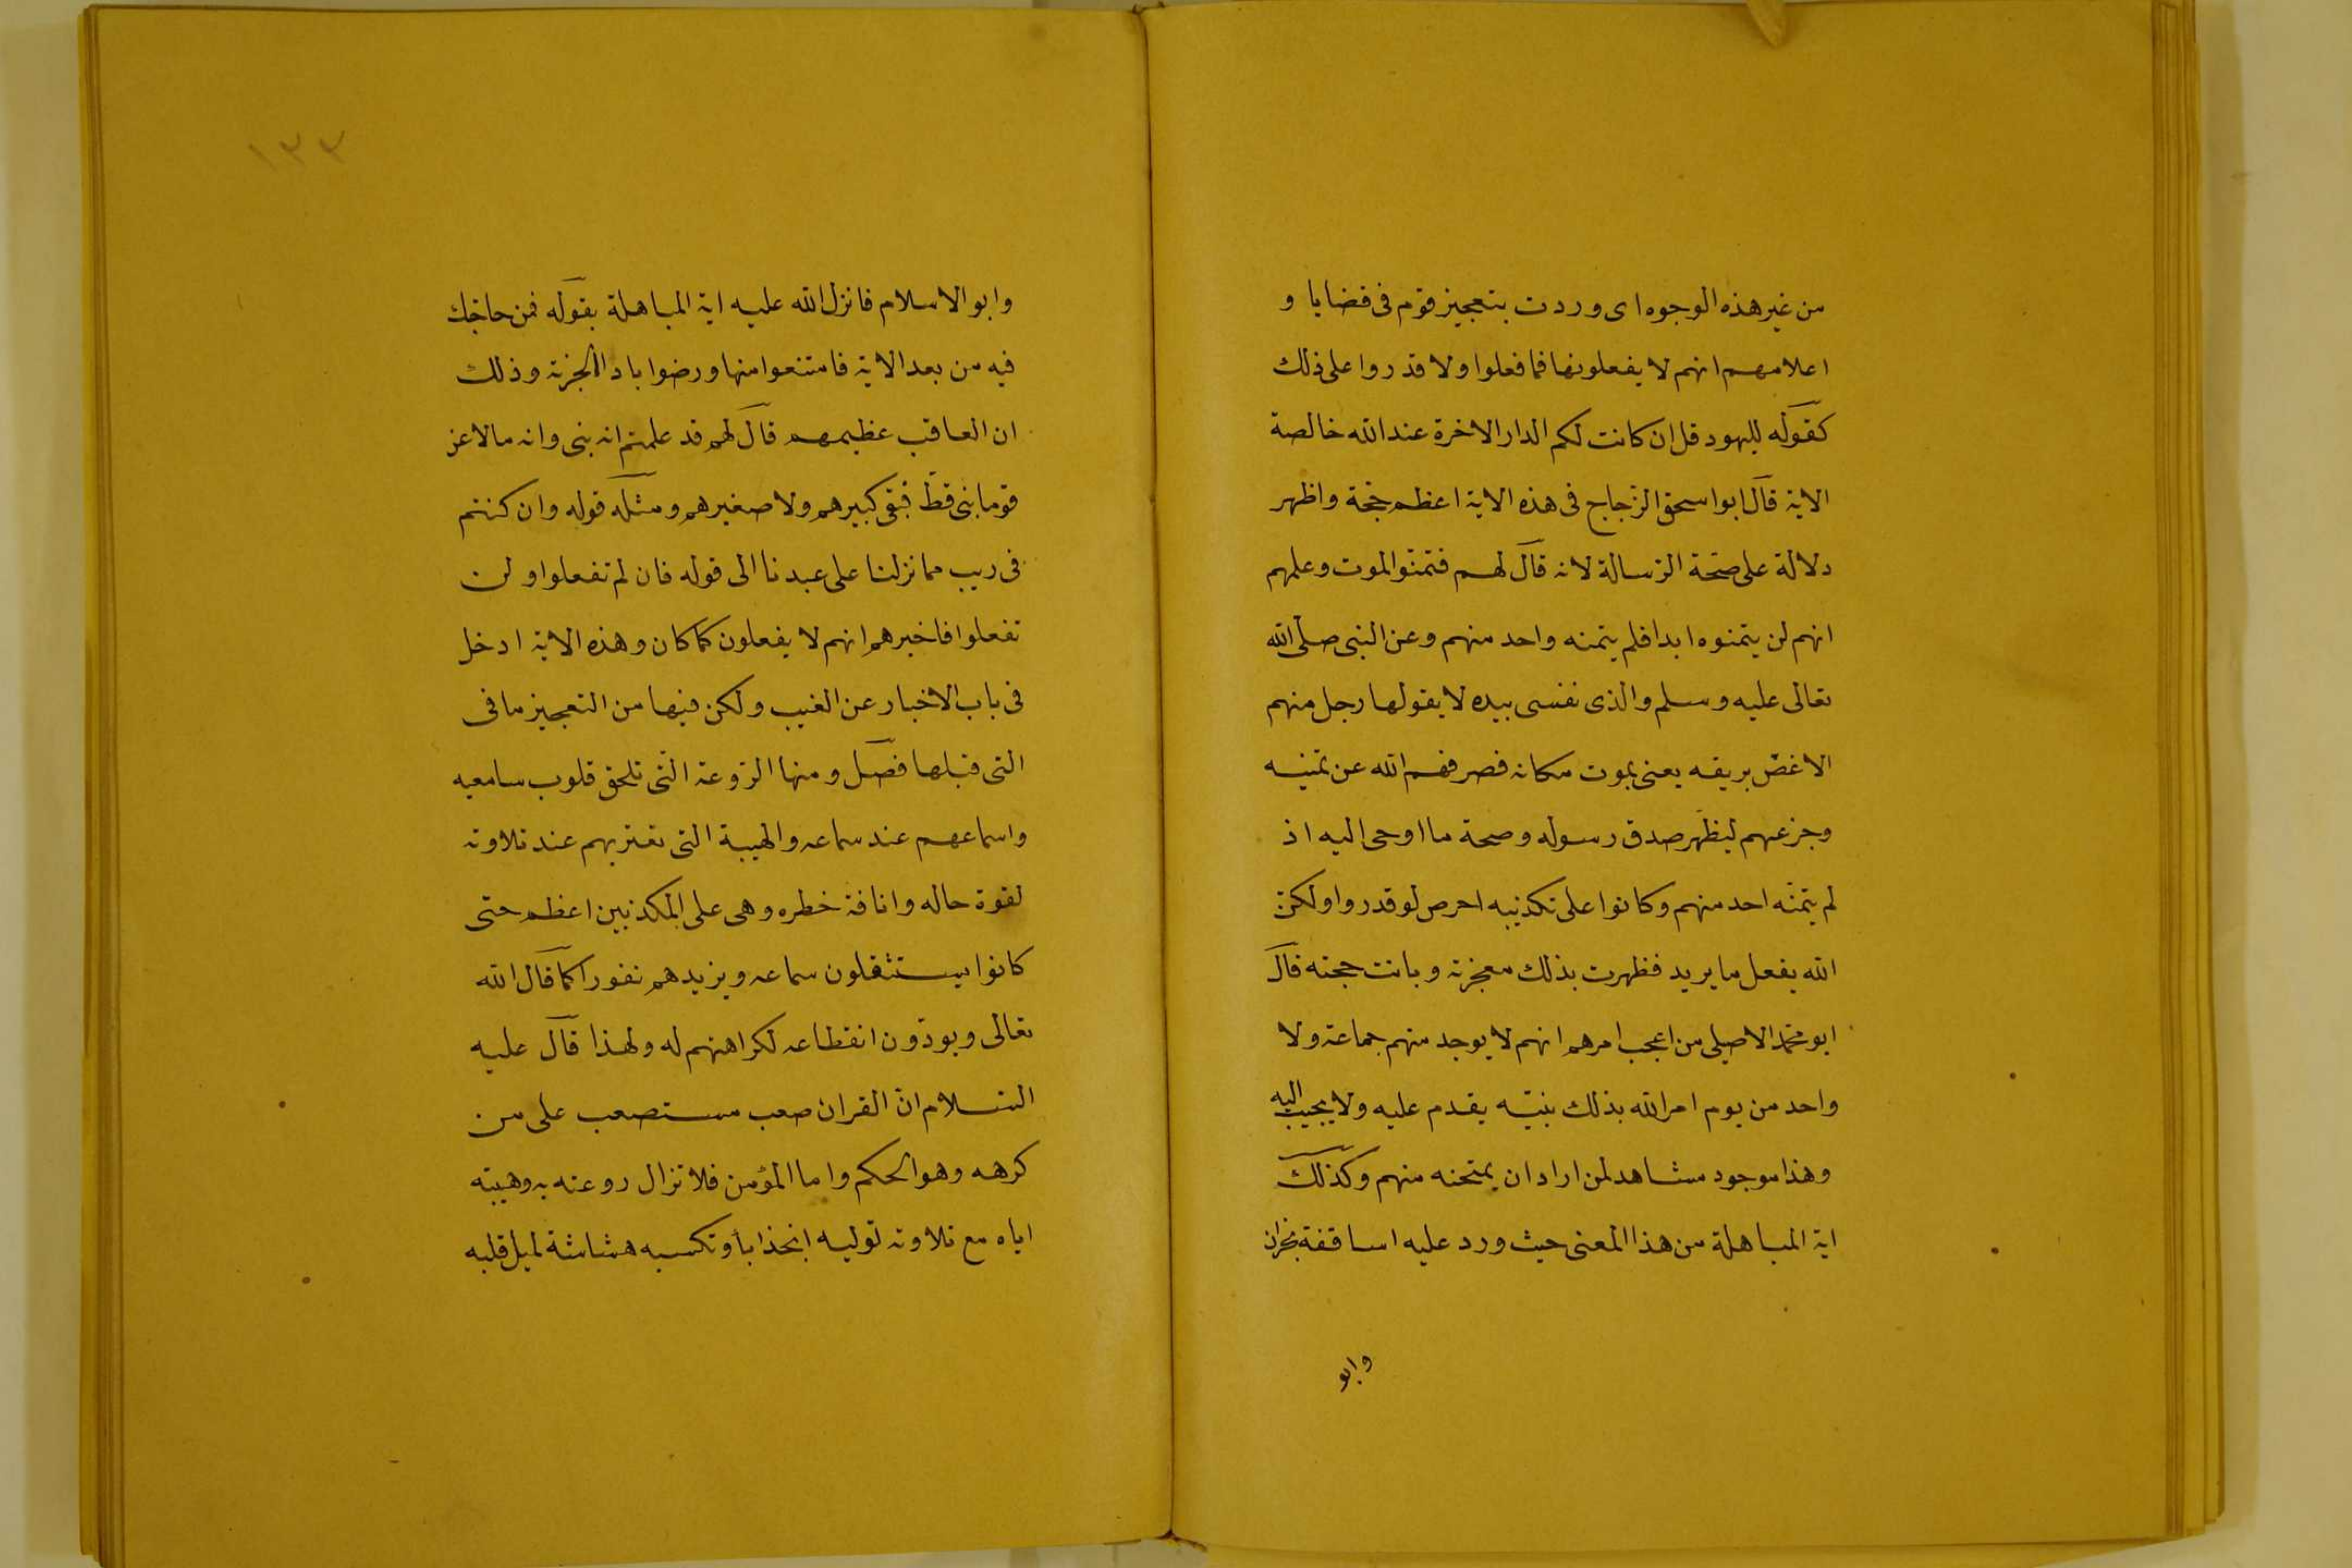 من غير هذه الوجوه اى وردت بتعجيز قوم فى قضايا و
اعلامهم انهم لا يفعلونها فما فعلوا ولا قدروا على ذلك
كقوله لليهود قل ان كانت لكم الدار الاخرة عند الله خالصة
الاية قال ابو اسحق الزجاج فى هذه الاية اعظم حجة واظهر
دلالة على صحّة الرسالة لانه قال لهم فتمنّوا الموت وعلمهم
انهم لن يتمنوه ابدا فلم يتمنه واحد منهم وعن النبى صلى الله
تعالى عليه وسلم والذى نفسى بيده لا يقولها رجل منهم
الا غصّ بريقه يعنى يموت مكانه فصرفهم الله عن تمنيه
وجزعهم ليظهر صدق رسوله وصحة ما اوحى اليه اذ
لم يتمنّه احد منهم وكانوا على تكذيبه احرص لو قدروا ولكنّ
الله يفعل ما يريد فظهرت بذلك معجزته وبانت حجته قال
ابو محمد الاصيلى من اعجب امرهم انهم لا يوجد منهم جماعة ولا
واحد من يوم امر الله بذلك نبيّه يقدم عليه ولا يجيب اليه
وهذا موجود مشاهد لمن اراد ان يمتحنه منهم وكذلك
اية المباهلة من هذا المعنى حيث ورد عليه اساقفة نجران
وابو
١٣٣
وابوا الاسلام فانزل الله عليه اية المباهلة بقوله فمن حاجّك
فيه من بعد الاية فامتنعوا منها ورضوا باداء الجزية وذلك
ان العاقب عظيمهم قال لهم قد علمتم انه نبى وانه ما لاعن
قوما نبى قطّ فبقى كبيرهم ولا صغيرهم ومثله قوله وان كنتم
فى ريب مما نزلنا على عبدنا الى قوله فان لم تفعلوا ولن
تفعلوا فاخبرهم انهم لا يفعلون كما كان وهذه الاية ادخل
فى باب الاخبار عن الغيب ولكن فيها من التعجيز ما فى
التى قبلها فصل ومنها الروعة التى تلحق قلوب سامعيه
واسماعهم عند سماعه والهيبة التى تعتريهم عند تلاوته
لقوة حاله وانافة خطره وهى على المكذبين اعظم حتى
كانوا يستثقلون سماعه ويزيدهم نفورا كما قال الله
تعالى ويودّون انقطاعه لكراهتهم له ولهذا قال عليه
السلام انّ القران صعب مستصعب على من
كرهه وهو الحكم واما المؤمن فلا تزال روعته به وهيبته
اياه مع تلاوته توليه انجذابا وتكسبه هشاشة لميل قلبه